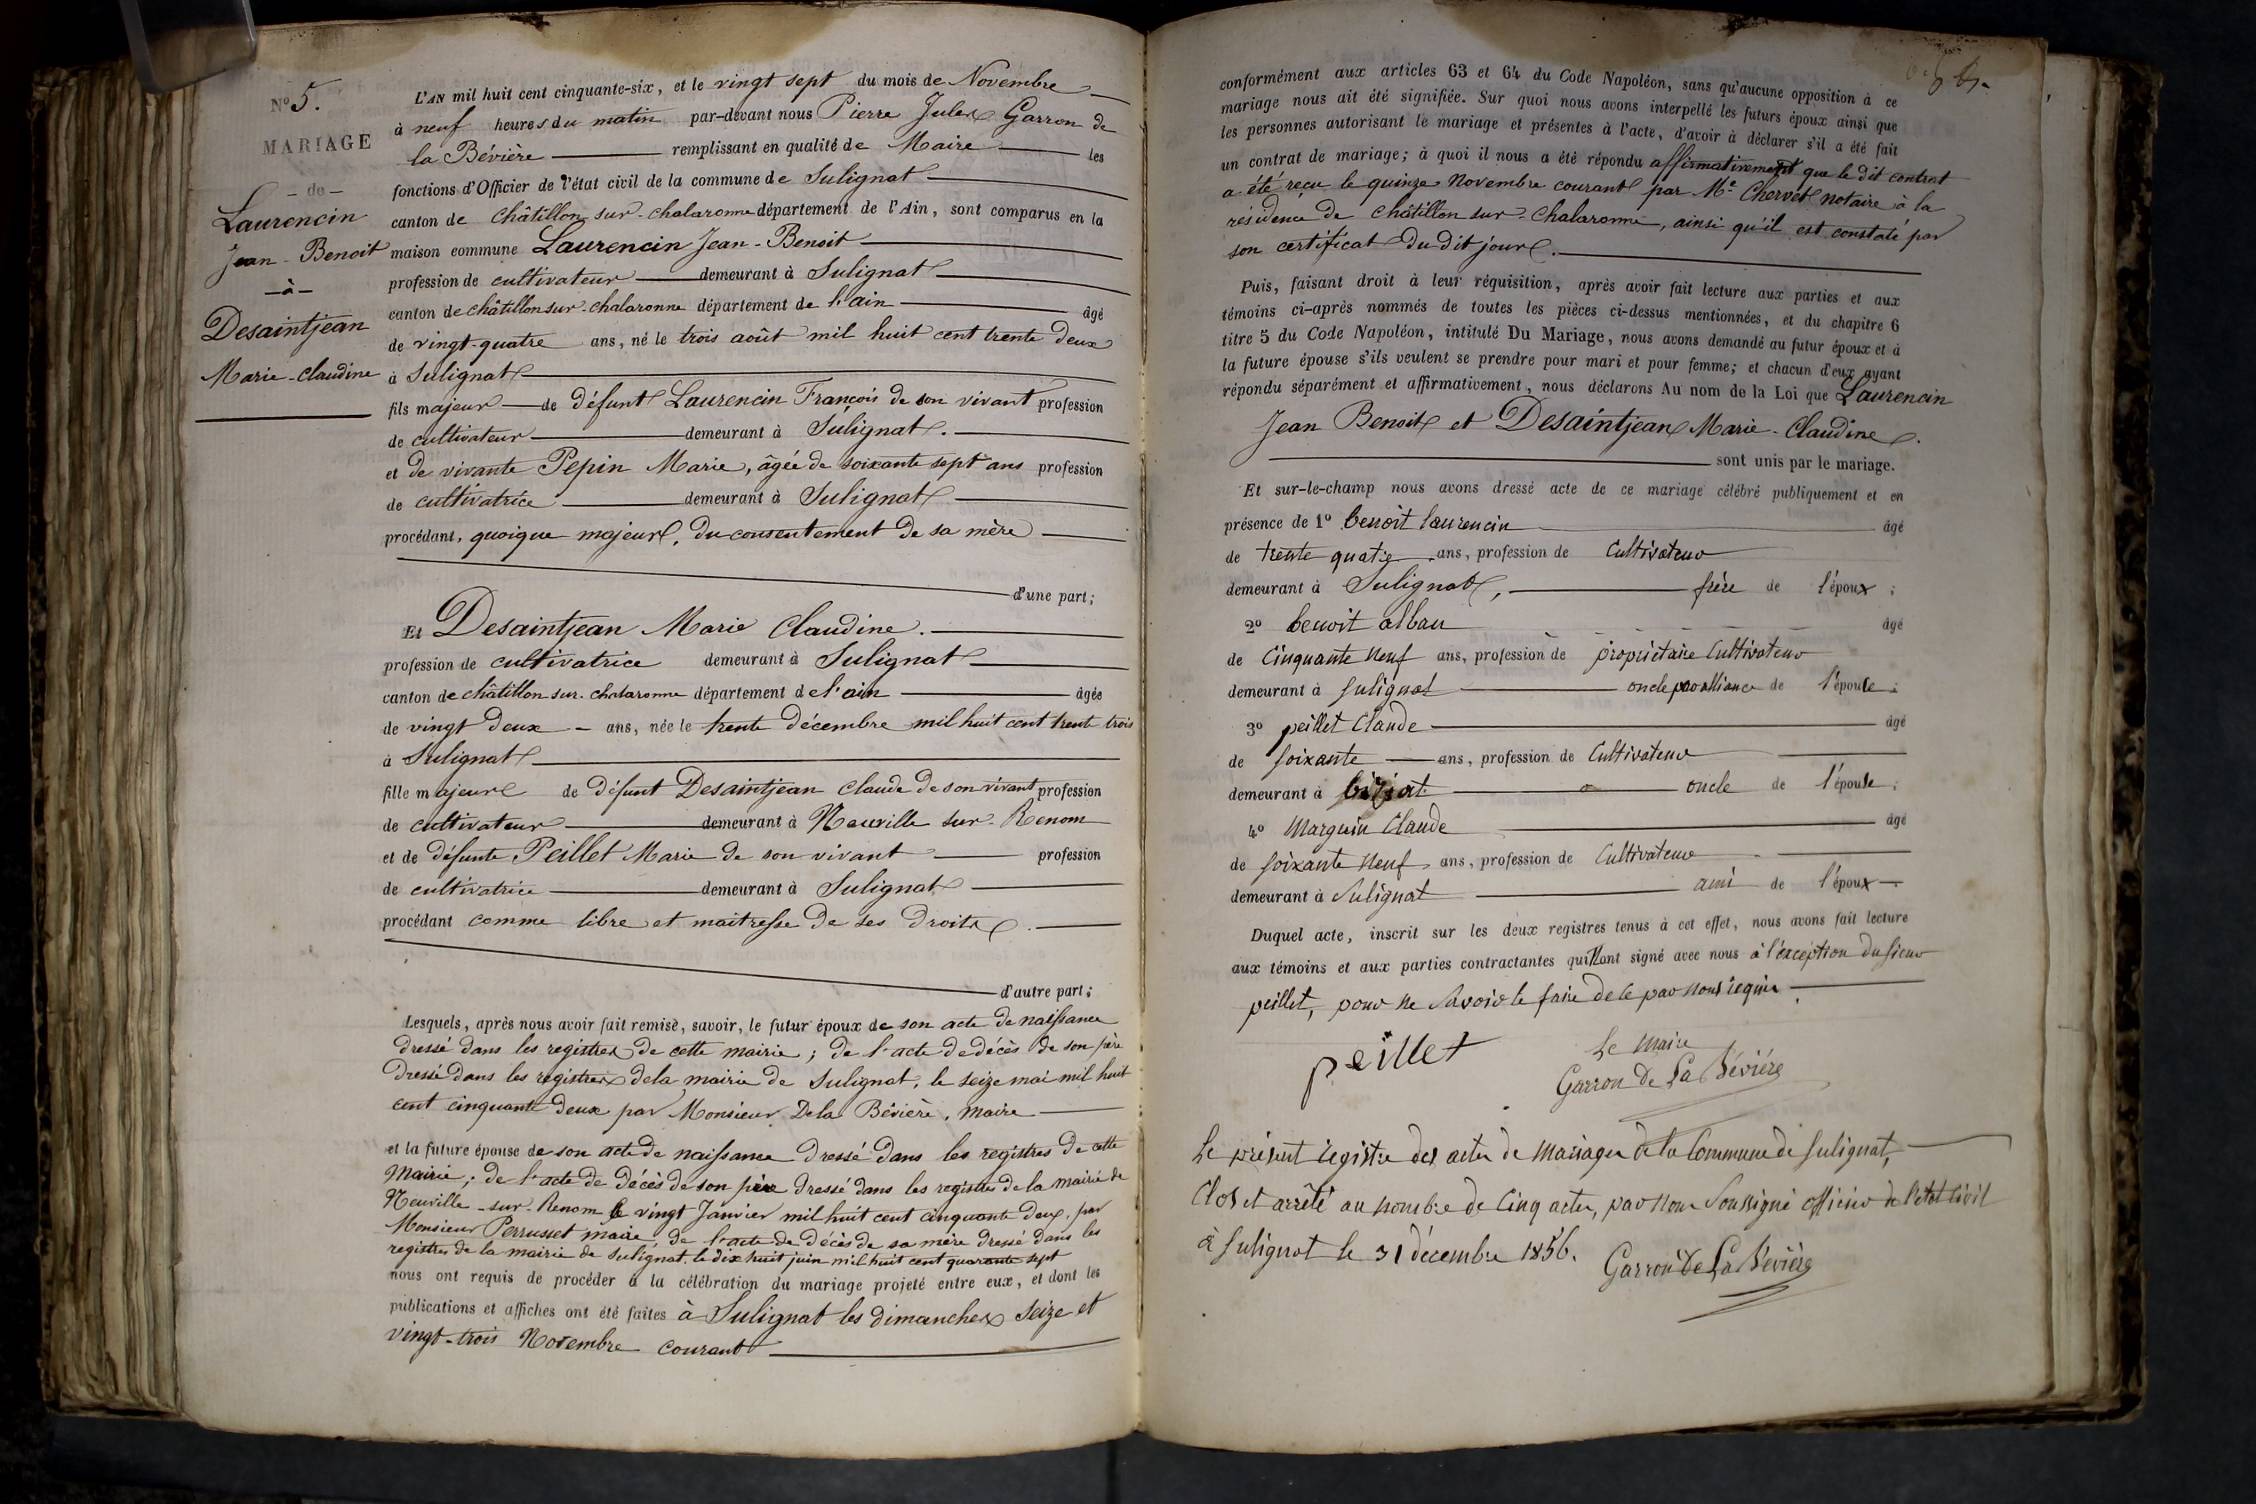 N° 5.
MARIAGE
- de -
Laurencin
Jean-Benoit
- à -
Desaintjean
Marie-Claudine
L'AN mil huit cent cinquante-six, et le vingt sept du mois de Novembre
à neuf heures du matin par-devant nous Pierre Jules Garron de
la Bévière remplissant en qualité de Maire les
fonctions d'Officier de l'état civil de la commune de Sulignat
canton de Châtillon sur-chalaronne département de l'Ain, sont comparus en la
maison commune Laurencin Jean-Benoit
profession de cultivateur demeurant à Sulignat
canton de châtillon sur-chalaronne département de l'ain âgé
de vingt-quatre ans, né le trois août mil huit cent trente deux
à Sulignat
fils majeur de défunt Laurencin François de son vivant profession
de cultivateur demeurant à Sulignat.
et de vivante Pepin Marie, âgée de soixante sept ans profession
de cultivatrice demeurant à Sulignat
procédant, quoique majeur, du consentement de sa mère
d'une part;
Et Desaintjean Marie Claudine.
profession de cultivatrice demeurant à Sulignat
canton de châtillon sur-chalaronne département de l'ain âgée
de vingt deux - ans, née le trente décembre mil huit cent trente trois
à Sulignat
fille majeure de défunt Desaintjean Claude de son vivant profession
de cultivateur demeurant à Neuville sur-Renom
et de défunte Peillet Marie de son vivant profession
de cultivatrice demeurant à Sulignat
procédant comme libre et maitresse de ses droits.
d'autre part;
Lesquels, après nous avoir fait remise, savoir, le futur époux de son acte de naissance
dressé dans les registres de cette mairie; de l'acte de décès de son père
dressé dans les registres de la mairie de Sulignat, le seize mai mil huit
cent cinquante deux par Monsieur De la Bévière, maire
et la future épouse de son acte de naissance dressé dans les registres de cette
Mairie; de l'acte de décès de son père dressé dans les registres de la mairie de
Neuville-sur-Renom le vingt Janvier mil huit cent cinquante deux, par
Monsieur Perrusset maire, de l'acte de décès de sa mère dressé dans les
registres de la mairie de Sulignat le dix huit juin mil huit cent quarante sept
nous ont requis de procéder à la célébration du mariage projeté entre eux, et dont les
publications et affiches ont été faites à Sulignat les dimanches seize et
vingt-trois Novembre courant
conformément aux articles 63 et 64 du Code Napoléon, sans qu'aucune opposition à ce
mariage nous ait été signifiée. Sur quoi nous avons interpellé les futurs époux ainsi que
les personnes autorisant le mariage et présentes à l'acte, d'avoir à déclarer s'il a été fait
un contrat de mariage; à quoi il nous a été répondu affirmativement que le dit contrat
a été reçu le quinze Novembre courant par Me Chervet notaire à la
résidence de Châtillon sur-Chalaronne, ainsi qu'il est constaté par
son certificat du dit jour.
Puis, faisant droit à leur réquisition, après avoir fait lecture aux parties et aux
témoins ci-après nommés de toutes les pièces ci-dessus mentionnées, et du chapitre 6
titre 5 du Code Napoléon, intitulé Du Mariage, nous avons demandé au futur époux et à
la future épouse s'ils veulent se prendre pour mari et pour femme; et chacun d'eux ayant
répondu séparément et affirmativement, nous déclarons Au nom de la Loi que Laurencin
Jean Benoit et Desaintjean Marie-Claudine.
sont unis par le mariage.
Et sur-le-champ nous avons dressé acte de ce mariage célébré publiquement et en
présence de 1° benoît laurencin âgé
de trente quatre ans, profession de Cultivateur
demeurant à Sulignat, frère de l'époux;
2° benoit alban âgé
de Cinquante Neuf ans, profession de propriétaire Cultivateur
demeurant à sulignat oncle par alliance de l'épouse;
3° peillet Claude âgé
de soixante ans, profession de Cultivateur
demeurant à oncle de l'épouse;
4° Marguin Claude âgé
de soixante Neuf ans, profession de Cultivateur
demeurant à Sulignat ami de l'époux.
Duquel acte, inscrit sur les deux registres tenus à cet effet, nous avons fait lecture
aux témoins et aux parties contractantes qui ont signé avec nous à l'exception du sieur
peillet, pour ne savoir le faire de ce par nous requis.
peillet
Le Maire
Garron de La Bévière
Le présent registre des actes de Mariages de la Commune de Sulignat,
Clos et arrêté au nombre de Cinq actes, par nous Soussigné officier de l'état civil
à Sulignat le 31 décembre 1856.
Garron de La Bévière